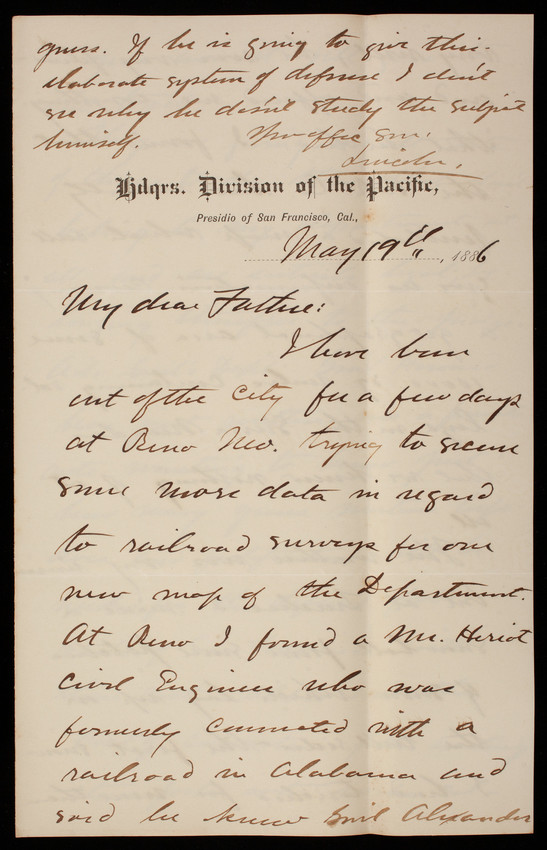 guess. If he is going to give this
elaborate system of defense I don't
see why he doesn't study the subject
himself. Your affec son.
Lincoln.
Hdqrs. Division of the Pacific,
Presidio of San Francisco, Cal.,
May 19th, 1886
My dear Father:
I have been
out of the city for a few days
at Reno Nev. trying to secure
some more data in regard
to railroad surveys for our
new map of the Department.
At Reno I found a Mr. Heriot
Civil Engineer who was
formerly connected with a
railroad in Alabama and
said he knew Alexander